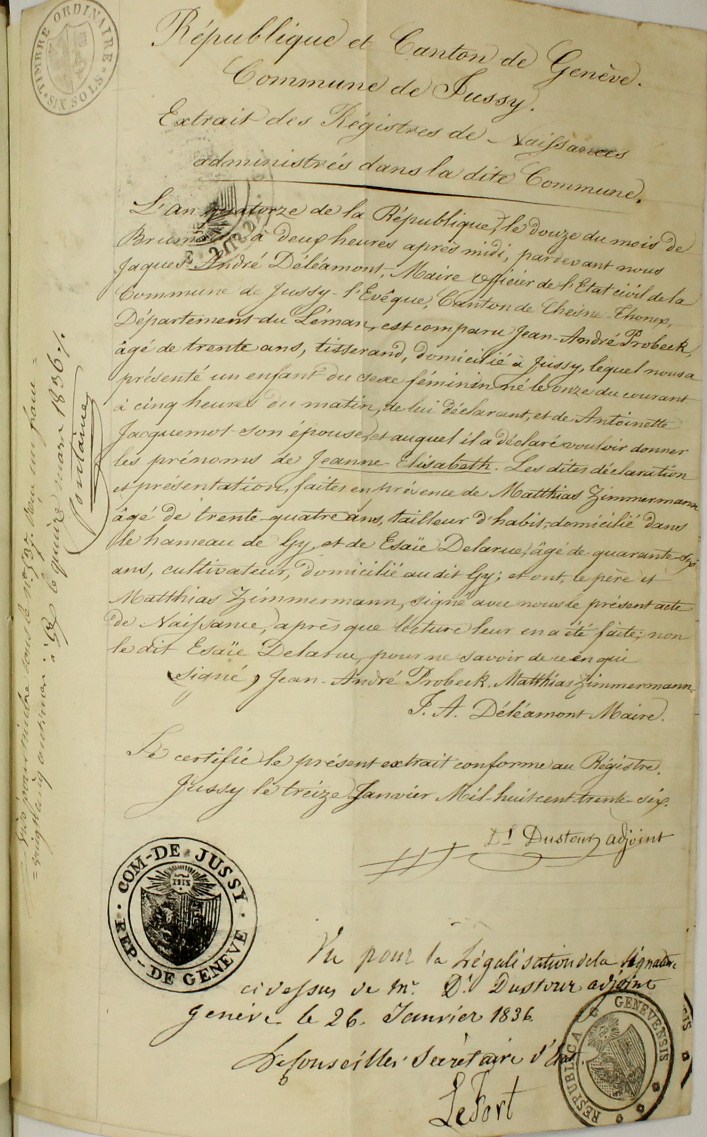 TIMBRE ORDINAIRE
SIX SOLS
République et Canton de Genève.
Commune de Jussy.
Extrait des Régistres de Naissances
administrés dans la dite Commune.
L'an quatorze de la République, le douze du mois de
à deux heures après midi, pardevant nous
Jaques André Déléamont, Maire officier de l'Etat civil de la
Commune de Jussy-l'Evêque, Canton de Chesne-Thonex,
Département du Léman, est comparu Jean-André Probeck,
âgé de trente ans, tisserand, domicilié à Jussy, lequel nous a
présenté un enfant du sexe féminin né le onze du courant
à cinq heures du matin, de lui déclarant, et de Antoinette
Jacquemot son épouse, et auquel il a déclaré vouloir donner
les prénoms de Jeanne Elisabeth. Les dites déclaration
et présentation, faites en présence de Matthias Zimmermann
âgé de trente-quatre ans, tailleur d'habis, domicilié dans
le hameau de Gy, et de Esaïe Delarue, âgé de quarante-six
ans, cultivateur, domicilié au dit Gy; et ont, le père et
Matthias Zimmermann, signé avec nous le présent acte
de Naissance, après que lecture leur en a été faite; non
le dit Esaïe Delarue, pour ne savoir de ce enqui
signé, Jean-André Probeck. Matthias Zimmermann.
J. A. Déléamont Maire.
Je certifie le présent extrait conforme au Régistre.
Jussy le treize Janvier Mil-huit cent trente-six.
Dl Dustour adjoint
COM-DE JUSSY
REP-DE GENEVE
Vu pour la Légalisation de la signature
ci dessus de Mr. Dl Dustour adjoint
Genève le 26 Janvier 1836
Le Conseiller Secrétaire d'Etat
LeFort
RESPUBLICA GENEVENSIS
le quinze mars 1836